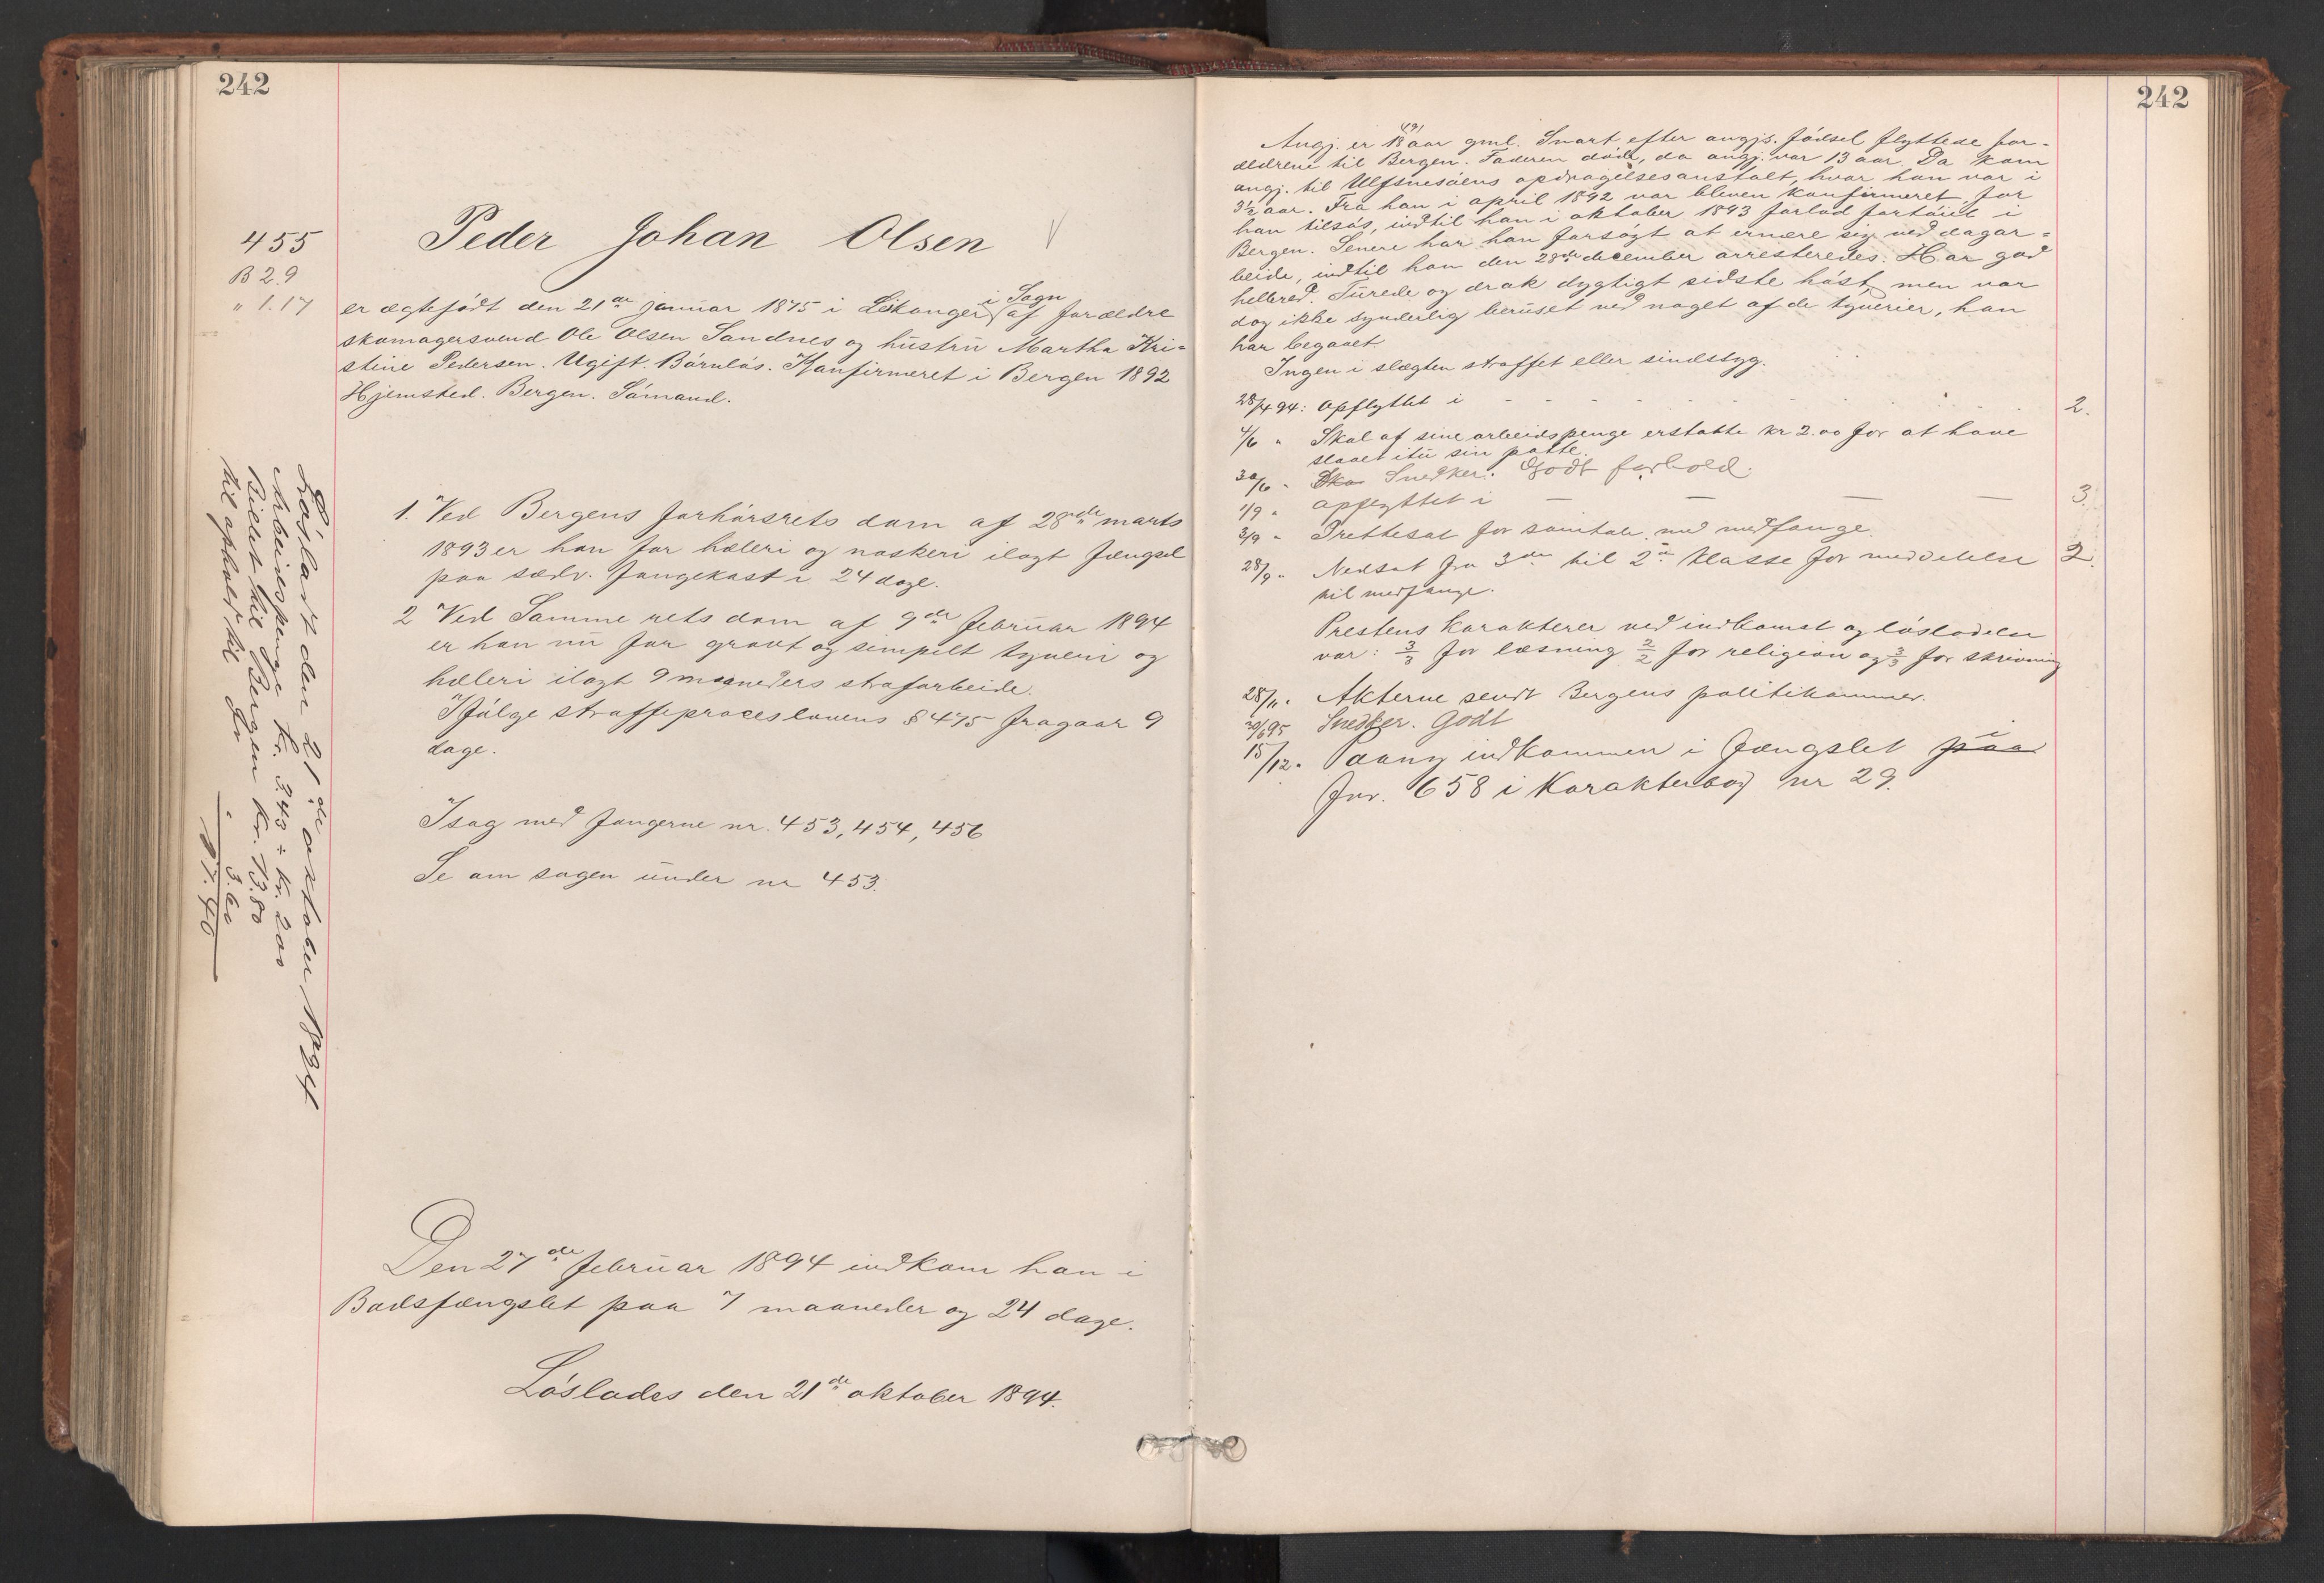 242
455
B 2.9
" 1.17
Peder Johan Olsen
er ægtefödt den 21de januar 1875 i Leikanger i Sogn af forældre
skomagersvend Ole Olsen Sandnes og hustru Martha Kri-
stine Pedersen. Ugift. Börnlös. Konfirmeret i Bergen 1892
Hjemsted. Bergen. Sömand.
1. Ved Bergens forhörsrets dom af 28de marts
1893 er han for hæleri og naskeri ilagt fængsel
paa sædv. fangekost i 24 dage.
2 Ved Samme rets dom af 9de februar 1894
er han nu for grovt og simpelt tyveri og
hæleri ilagt 9 maaneders strafarbeide.
Ifölge straffeproceslovens § 475 fragaar 9
dage.
I sag med fangerne nr. 453, 454, 456
Se om sagen under nr 453.
Den 27de februar 1894 indkom han i
Bodsfængslet paa 7 maaneder og 24 dage.
Löslades den 21de oktober 1894.
Lösladt den 21de oktober 1894
Arbeidspenge kr. 3.43 ÷ kr. 2.00
Billet til Bergen kr. 13.80
til ophold til do " 3.60
17.40
242
Angj. er 18 aar gml. Snart efter angjs. födsel flyttede for-
ældrene til Bergen. Faderen döde, da angj. var 13 aar. Da kom
angj. til Ulfsnesöens opdragelsesanstalt, hvor han var i
3½ aar. Fra han i april 1892 var bleven konfirmeret, for
han tilsös, indtil han i oktober 1893 forlod fartöiet i
Bergen. Senere har han forsögt at ernære sig ved dagar-
beide, indtil han den 28de december arresteredes. Har god
helbred. Turede og drak dygtigt sidste höst, men var
dog ikke synderlig beruset ved noget af de tyverier, han
har begaaet.
Ingen i slægten straffet eller sindssyg.
28/4 94: Opflyttet i - - - - - - - 2.
4/6 " Skal af sine arbeidspenge erstatte kr 2.00 for at have
slaaet itu sin potte.
30/6 " Ska Snedker. Godt forhold.
1/9 " opflyttet i — — — — 3.
3/9 " Irettesat for samtale med medfange.
28/9 " Nedsat fra 3de til 2den klasse for meddelelse 2.
til medfange.
Prestens karakterer ved indkomst og lösladelse
var: 3/3 for læsning 2/2 for religion og 3/3 for skrivning
28/11 " Akterne sendt Bergens politikammer.
30/6 95 Snedker. Godt
15/12 " Paany indkommen i fængslet paa i
fnr. 658 i Karakterbog nr 29.